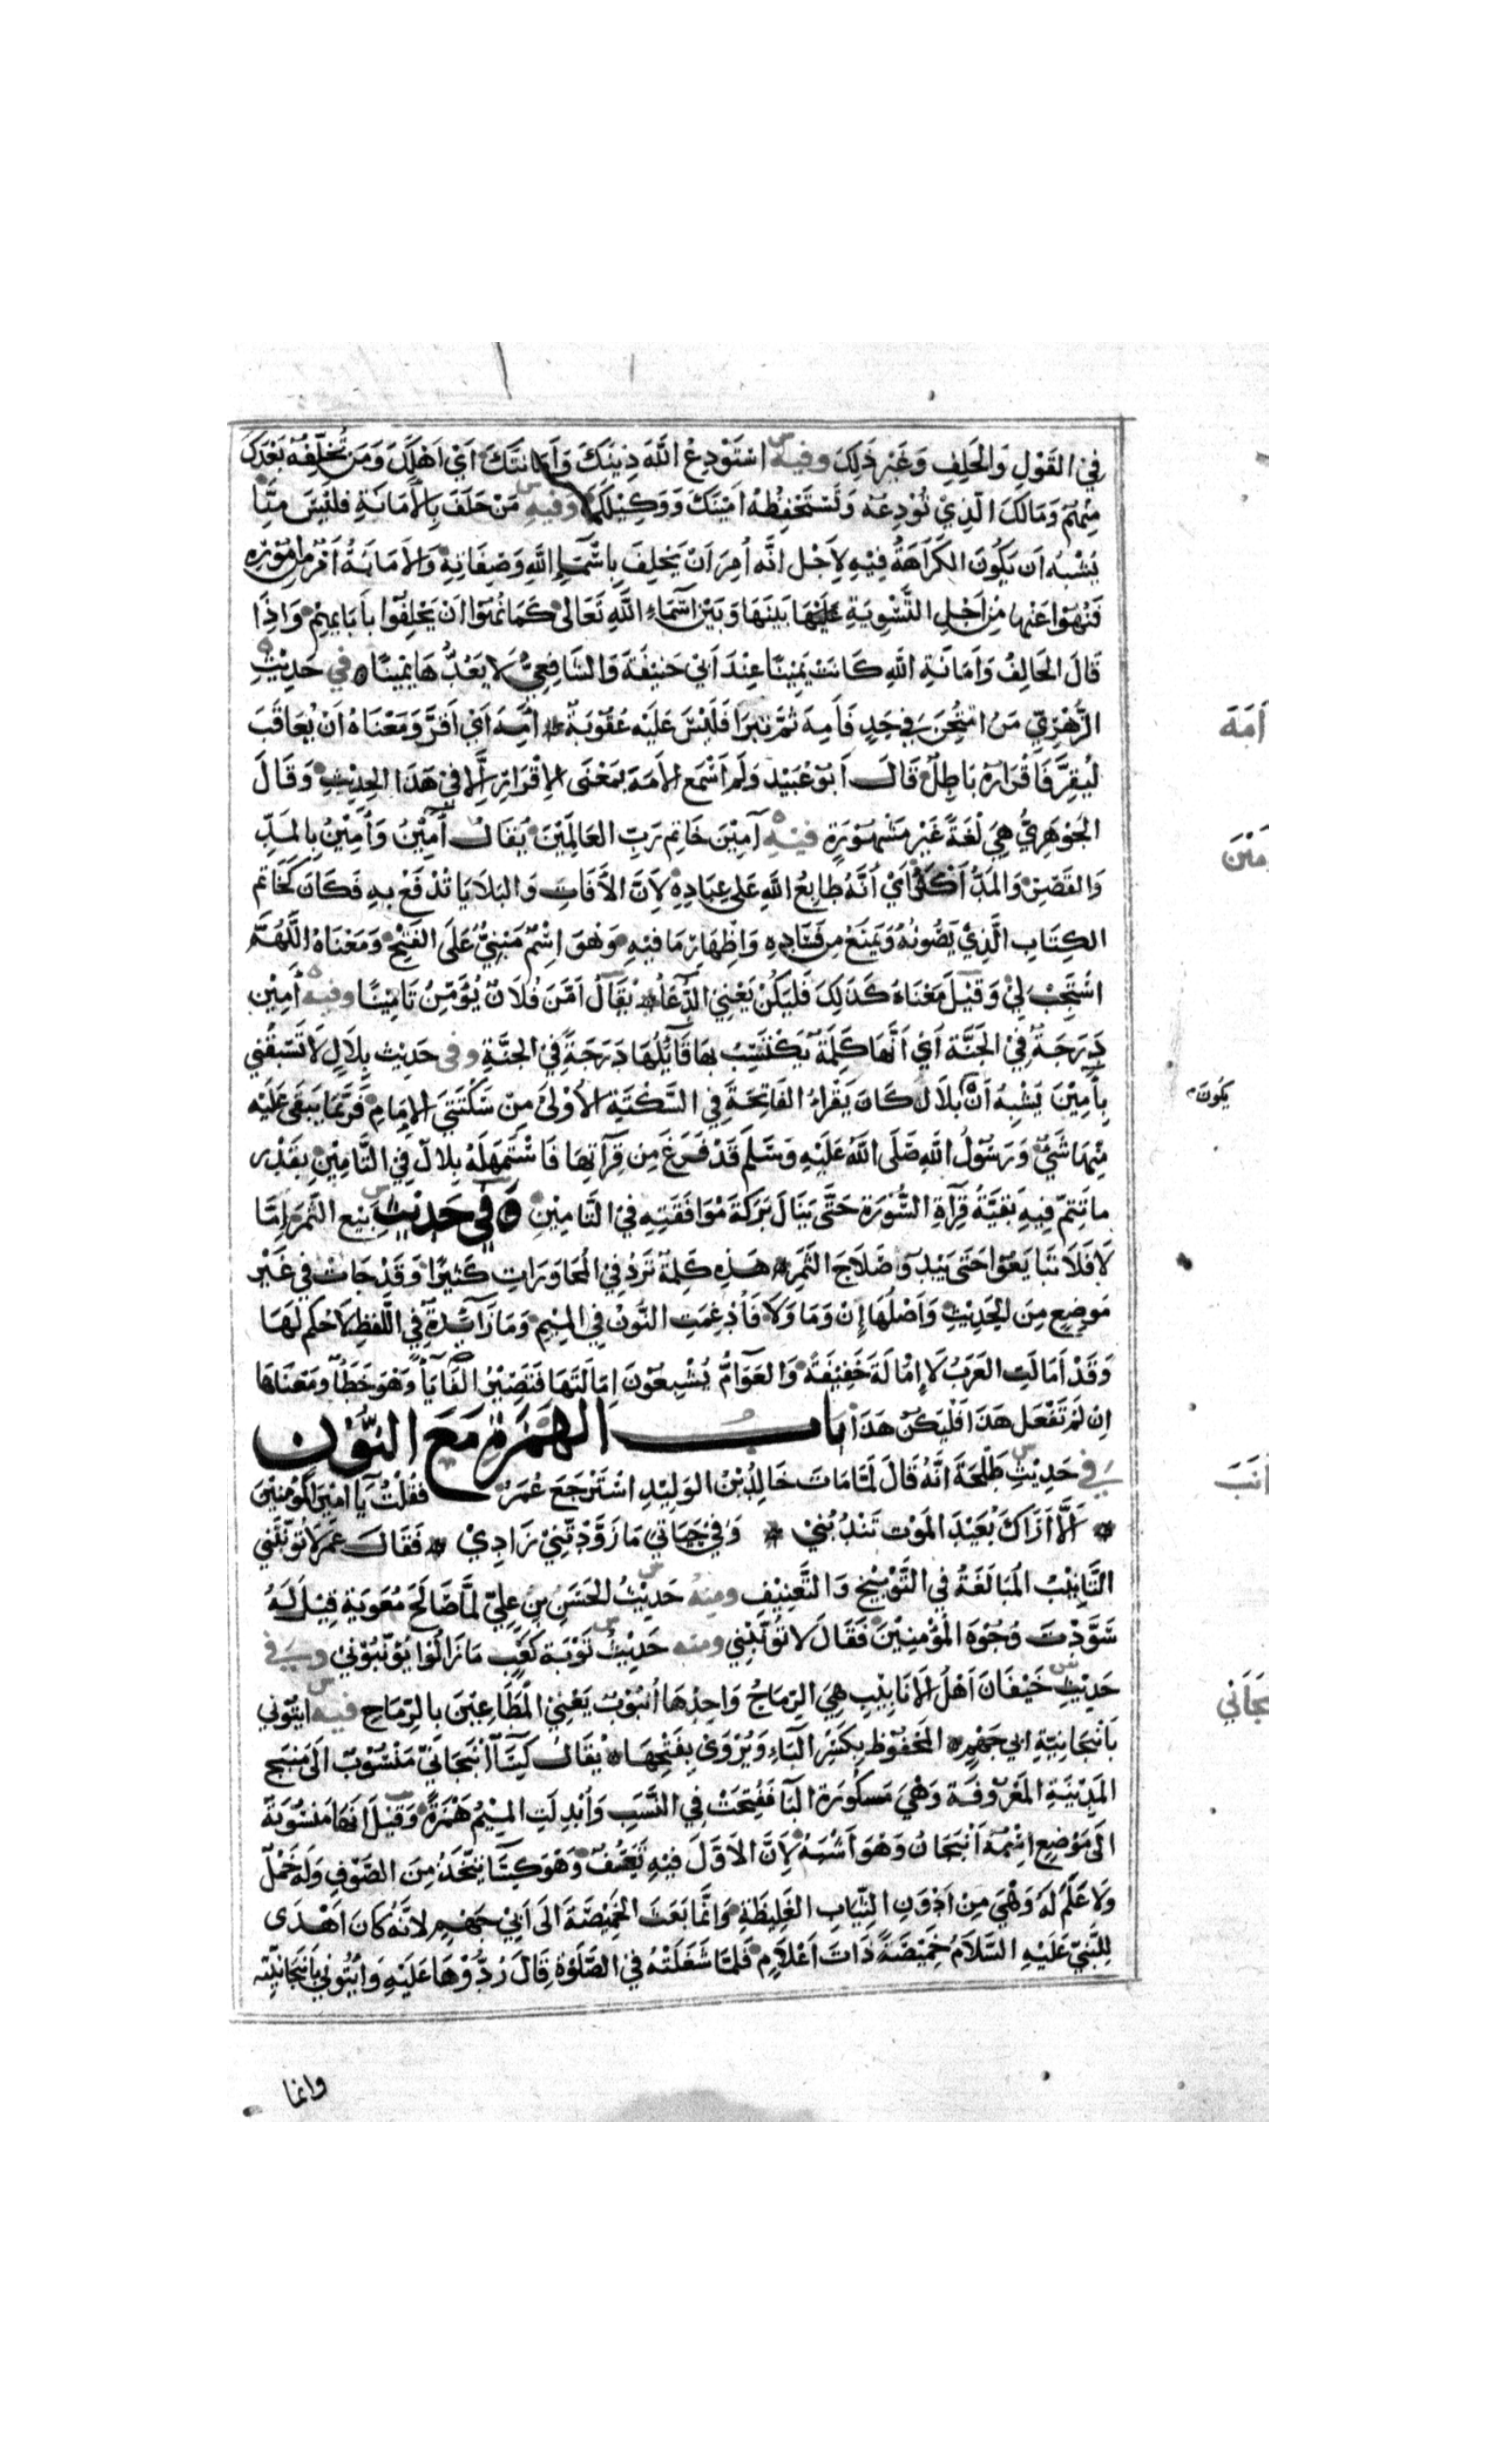 في القَوْلِ وَالحَلِفِ وَغَيْرِ ذَلِكَ وفيه اسْتَوْدِعُ اللَّهَ دِينَكَ وَأَمَانَتَكَ أيْ أهْلَكَ وَمَن تُخَلِّفُهُ بَعْدَكَ
مِنْهُمْ وَمَالَكَ الَّذِيْ تُوْدِعُهُ وَتَسْتَحْفِظُهُ اَمِيْنَكَ وَوَكِيْلَكَ وَفيهِ مَنْ حَلَفَ بِالأَمَانَةِ فَلَيْسَ مِنَّا
يُشْبِهُ اَن يَكُونَ الكَرَاهَةُ فِيْهِ لِأَجْلِ انَّه اُمِرَ اَنْ يَحْلِفَ بِاَسْمَاءِ اللَّهِ وَصِفَاتِهِ وَالأَمَانَةُ اَمْرٌ مِنْ اُمُوْرِهِ
فَنُهُوْا عَنْهَا مِنْ اَجْلِ التَّسْوِيَةِ بَيْنَهَا وَبَيْنَ اَسْمَاءِ اللَّهِ تَعَالَى كَمَا نُهُوْا اَنْ يَحْلِفُوْا بِاَبَايِهِمْ وَاِذَا
قَالَ الحَالِفُ وَاَمَانَةِ اللَّهِ كَانَتْ يَمِيْنًا عِنْدَ اَبِيْ حَنِيْفَةَ وَالشَّافِعِيُّ لَا يَعُدُّهَا يَمِيْنًا في حَدِيْثِ
الزُّهْرِيّ مَنِ امْتُحِنَ في حَدٍ فَاَمِهَ ثُمَّ تَبَرَّا فَلَيْسَ عَلَيْهِ عُقُوْبَةٌ اَمِهَ اَيْ اَقَرَّ وَمَعْنَاهُ اَنْ يُعَاقَبَ
لِيُقِرَّ فَاِقْرَارُهُ بَاطِلٌ قَالَ اَبُوْ عُبَيْدٍ وَلَم اَسْمَعِ الاَمَهَ بِمَعْنَى الاِقْرَارِ اِلَّا فِيْ هَذَا الحَدِيْثِ وَقَالَ
الجَوْهَرِيُّ هِيَ لُغَةٌ غَيْرُ مَشْهُوْرَةٍ فيه آمِيْنَ خَاتِمُ رَبِّ العَالَمِيْنَ يُقَالُ آمِيْنُ وَأَمِيْنُ بِالمَدِّ
وَالقَصْرِ وَالمَدُّ اَكْثَرُ اَيْ اَنَّهُ طَابِعُ اللَّهِ عَلَى عِبَادِهِ لِاَنَّ الآَفَاتِ وَالبَلَايَا تُدْفَعُ بِهِ فَكَانَ كَخَاتَمِ
الكِتَابِ الَّذِيْ يَصُوْنُهُ وَيَمْنَعُ مِن فَسَادِهِ وَاِظْهَارِ مَا فِيْهِ وَهُوَ اِسْمٌ مَبْنِيٌّ عَلَى الفَتْحِ وَمَعْنَاهُ اللَّهُمَّ
اسْتَجِبْ لِيْ وَقِيْلَ مَعْنَاهُ كَذَلِكَ فَلْيَكُنْ يَعْنِي الدُّعَاءَ يُقَالُ اَمَّنَ فُلَانٌ يُؤَمِّنُ تَامِيْنًا وفيه آمِيْن
دَرَجَةٌ فِي الجَنَّةِ اَيْ اَنَّهَا كَلِمَةٌ يَكْتَسِبُ بِهَا قَائِلُهَا دَرَجَةً فِي الجَنَّةِ وفي حَدِيْثِ بِلَالٍ لَا تَسْبِقْنِي
بِآمِيْنَ يَشْبِهُ اَنْ بِلَال كَانَ يَقْرَاءُ الفَاتِحَةَ فِي السَّكْتَةِ الاُوْلَى مِنْ سَكْتَتَيِ الاِمَامِ فَرُبَّمَا يَبْقَى عَلَيْهِ
يَكُونَ
مِنْهَا شَيْءٌ وَرَسُوْلُ اللَّهِ صَلَّى اللَّهُ عَلَيْهِ وَسَلَّمَ قَدْ فَرَغَ مِن قِرَآتِهَا فَاسْتَمْهَلَهُ بِلَالٌ فِي التَّامِيْنِ بِقَدْرِ
مَا تَتِمُّ فِيهِ بَقِيَّةُ قِرَآةِ السُّوْرَةِ حَتَّى يَنَالَ بَرَكَةَ مُوَافَقَتِهِ فِي التَّامِيْنِ وَفِي حَدِيْثِ بَيْعِ الثَّمَرِ اِمَّا
لَا فَلَا تَبَايَعُوْا حَتَّى يَبْدُوَ صَلَاحُ الثَّمَرِ هَذِهِ كَلِمَةٌ تَرِدُ فِي المُحَاوَرَاتِ كَثِيْرًا وَقَدْ جَاتْ فِي غَيْرِ
مَوْضِعٍ مِنَ الحَدِيْثِ وَاَصْلُهَا اِنْ وَمَا وَلَا فَاُدْغِمَتِ النُّوْنُ فِي المِيْمِ وَمَا زَآئِدَةٌ فِي اللَّفْظِ لَا حُكْمَ لَهَا
وَقَدْ اَمَالَتِ العَرَبُ لَا اِمَالَةً خَفِيْفَةً وَالعَوَامُّ يُشْبِعُوْنَ اِمَالَتَهَا فَتَصِيْرُ الفُهَا يَاً وَهُوَ خَطَأٌ وَمَعْنَاهَا
اِن لَمْ تَفْعَلْ هَذَا فَلْيَكُنْ هَذَا بَابُ الهَمْزَةِ مَعَ النُّوْنِ
في حَدِيْثِ طَلْحَةَ اَنَّهُ قَالَ لَمَّا مَاتَ خَالِدُ بْنُ الوَلِيْدِ اسْتَرْجَعَ عُمَرُ فَقُلْتُ يَا اَمِيْرَ المُؤْمِنِيْنَ
اَلَا اَرَاكَ بُعَيْدَ المَوْتِ تَنْدُبُنِيْ وَفِيْ حَيَاتِيْ مَا زَوَّدْتَنِيْ زَادِيْ فَقَالَ عُمَرُ لَا تُؤَنِّبْنِي
التَّانِيْبُ المُبَالَغَةُ فِي التَّوْبِيْخِ وَالتَّعْنِيْفِ ومنه حَدِيْثُ الحَسَنِ بْنِ عَلِيّ لَمَّا صَالَحَ مُعَوِيَةَ قِيْلَ لَهُ
سَوَّدْتَ وُجُوْهَ المُؤْمِنِيْنَ فَقَالَ لَا تُؤَنِّبْنِي ومنه حَدِيْثُ تَوْبَةِ كَعْبٍ مَا زَالُوْا يُؤَنِّبُوْنِيْ وفي
حَدِيْثِ خَيْفَانَ اَهْلُ الاَنَابِيْبِ هِيَ الرِّمَاحُ وَاحِدُهَا اُنْبُوْبٌ يَعْنِي المُطَاعِنِيْنَ بِالرِّمَاحِ فيه ايْتُوْنِي
بِاَنْبِجَانِيَّةِ اَبِي جَهْمٍ المَحْفُوْظُ بِكَسْرِ البَاءِ وَيُرْوَى بِفَتْحِهَا يُقَالُ كِسَآءٌ اَنْبِجَانِيٌّ مَنْسُوْبٌ اِلَى مَنْبِجَ
المَدِيْنَةِ المَعْرُوْفَةِ وَهِيَ مَكسُوْرَةُ البَا فَفُتِحَتْ فِي النَّسَبِ وَاُبْدِلَتِ المِيْمُ هَمْزَةً وَقِيْلَ اَنَّهَا مَنْسُوْبَةٌ
اِلَى مَوْضِعٍ اِسْمُهُ اَنْبِجَانُ وَهُوَ اَشْبَهُ لِاَنَّ الاَوَّلَ فِيْهِ تَعَسُّفٌ وَهُوَ كِسَآءٌ يُتَّخَذُ مِنَ الصُّوْفِ وَلَهُ خَمْلٌ
وَلَا عَلَمَ لَهُ وَهِيَ مِنْ اَدْوَنِ الثِّيَابِ الغَلِيْظَةِ وَاِنَّمَا بَعَثَ الخَمِيْصَةَ اِلَى اَبِيْ جَهْمٍ لِاَنَّهُ كَانَ اَهْدَى
لِلنَّبِيّ عَلَيْهِ السَّلَامُ خَمِيْصَةً ذَاتَ اَعْلَامٍ فَلَمَّا شَغَلَتْهُ فِي الصَّلٰوةِ قَالَ رُدُّوْهَا عَلَيْهِ وَأْتُوْنِي بِاَنْبِجَانِيَّتِهِ
وانما
أَمَهَ
أَنَبَ